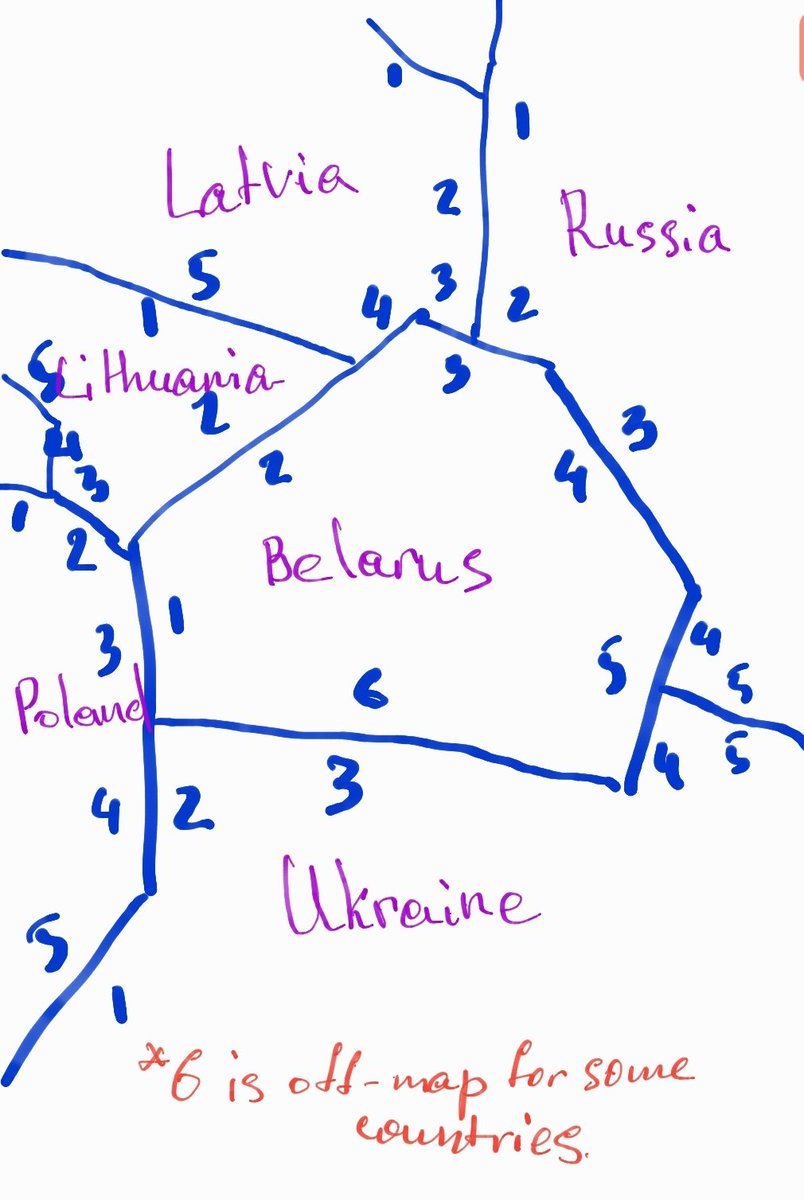 1
1
Latvia
2
Russia
5
3
4
2
1
5
Lithuania
3
2
3
4
4
2
3
1
2
Belarus
1
4
3
5
5
6
Poland
5
4
3
4
2
Ukraine
5
1
*6 is off-map for some
countries.